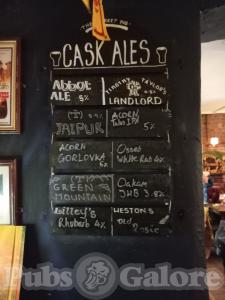 THE MARKET PUB
CASK ALES
Abbot
ALE 5%
TIMOTHY TAYLOR'S
LANDLORD
(T) 5.9%
JAIPUR
ACORN
IPA 5%
ACORN
GORLOVKA
6%
Ossett
White Rat 4%
(T)
GREEN
MOUNTAIN
Oakam
JHB 3.8%
Billey's
Rhubarb 4%
WESTONS
Old
Rosie
Pubs Galore